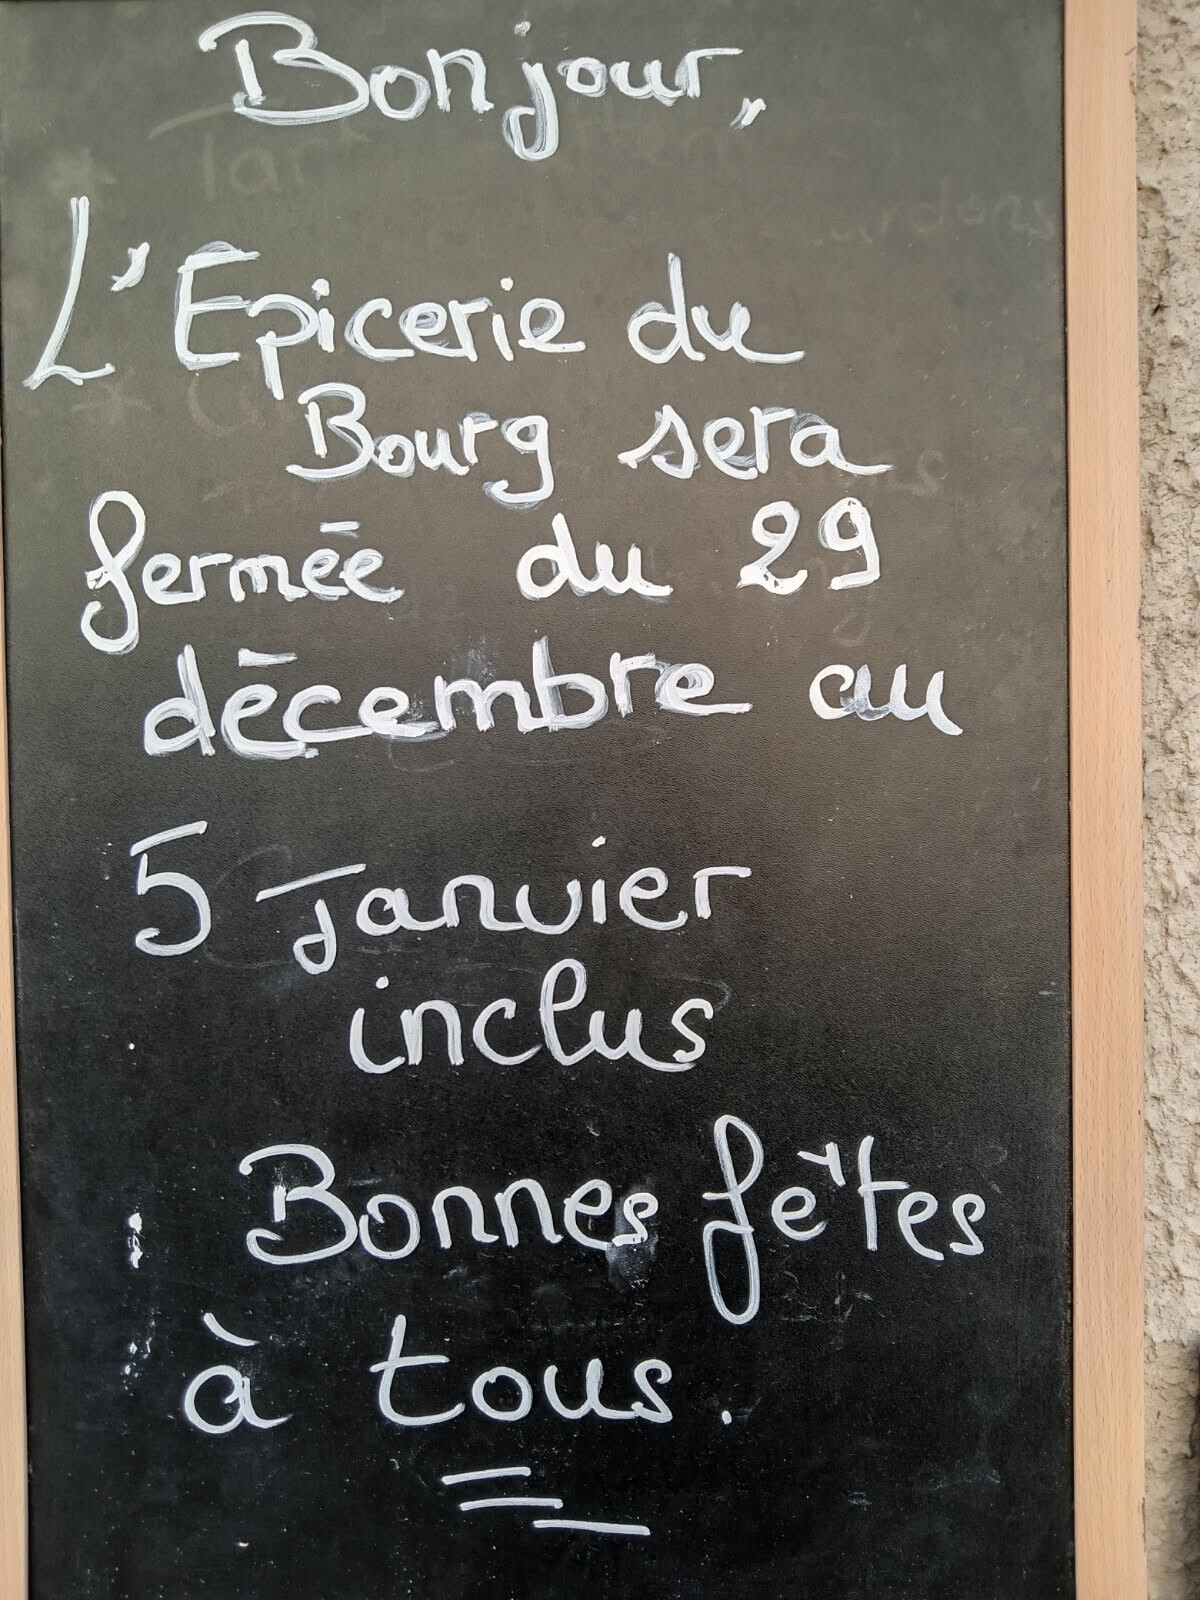 Bonjour,,
L'Epicerie du
Bourg sera
fermée du 29
décembre au
5 Janvier
inclus
Bonnes fêtes
à tous.